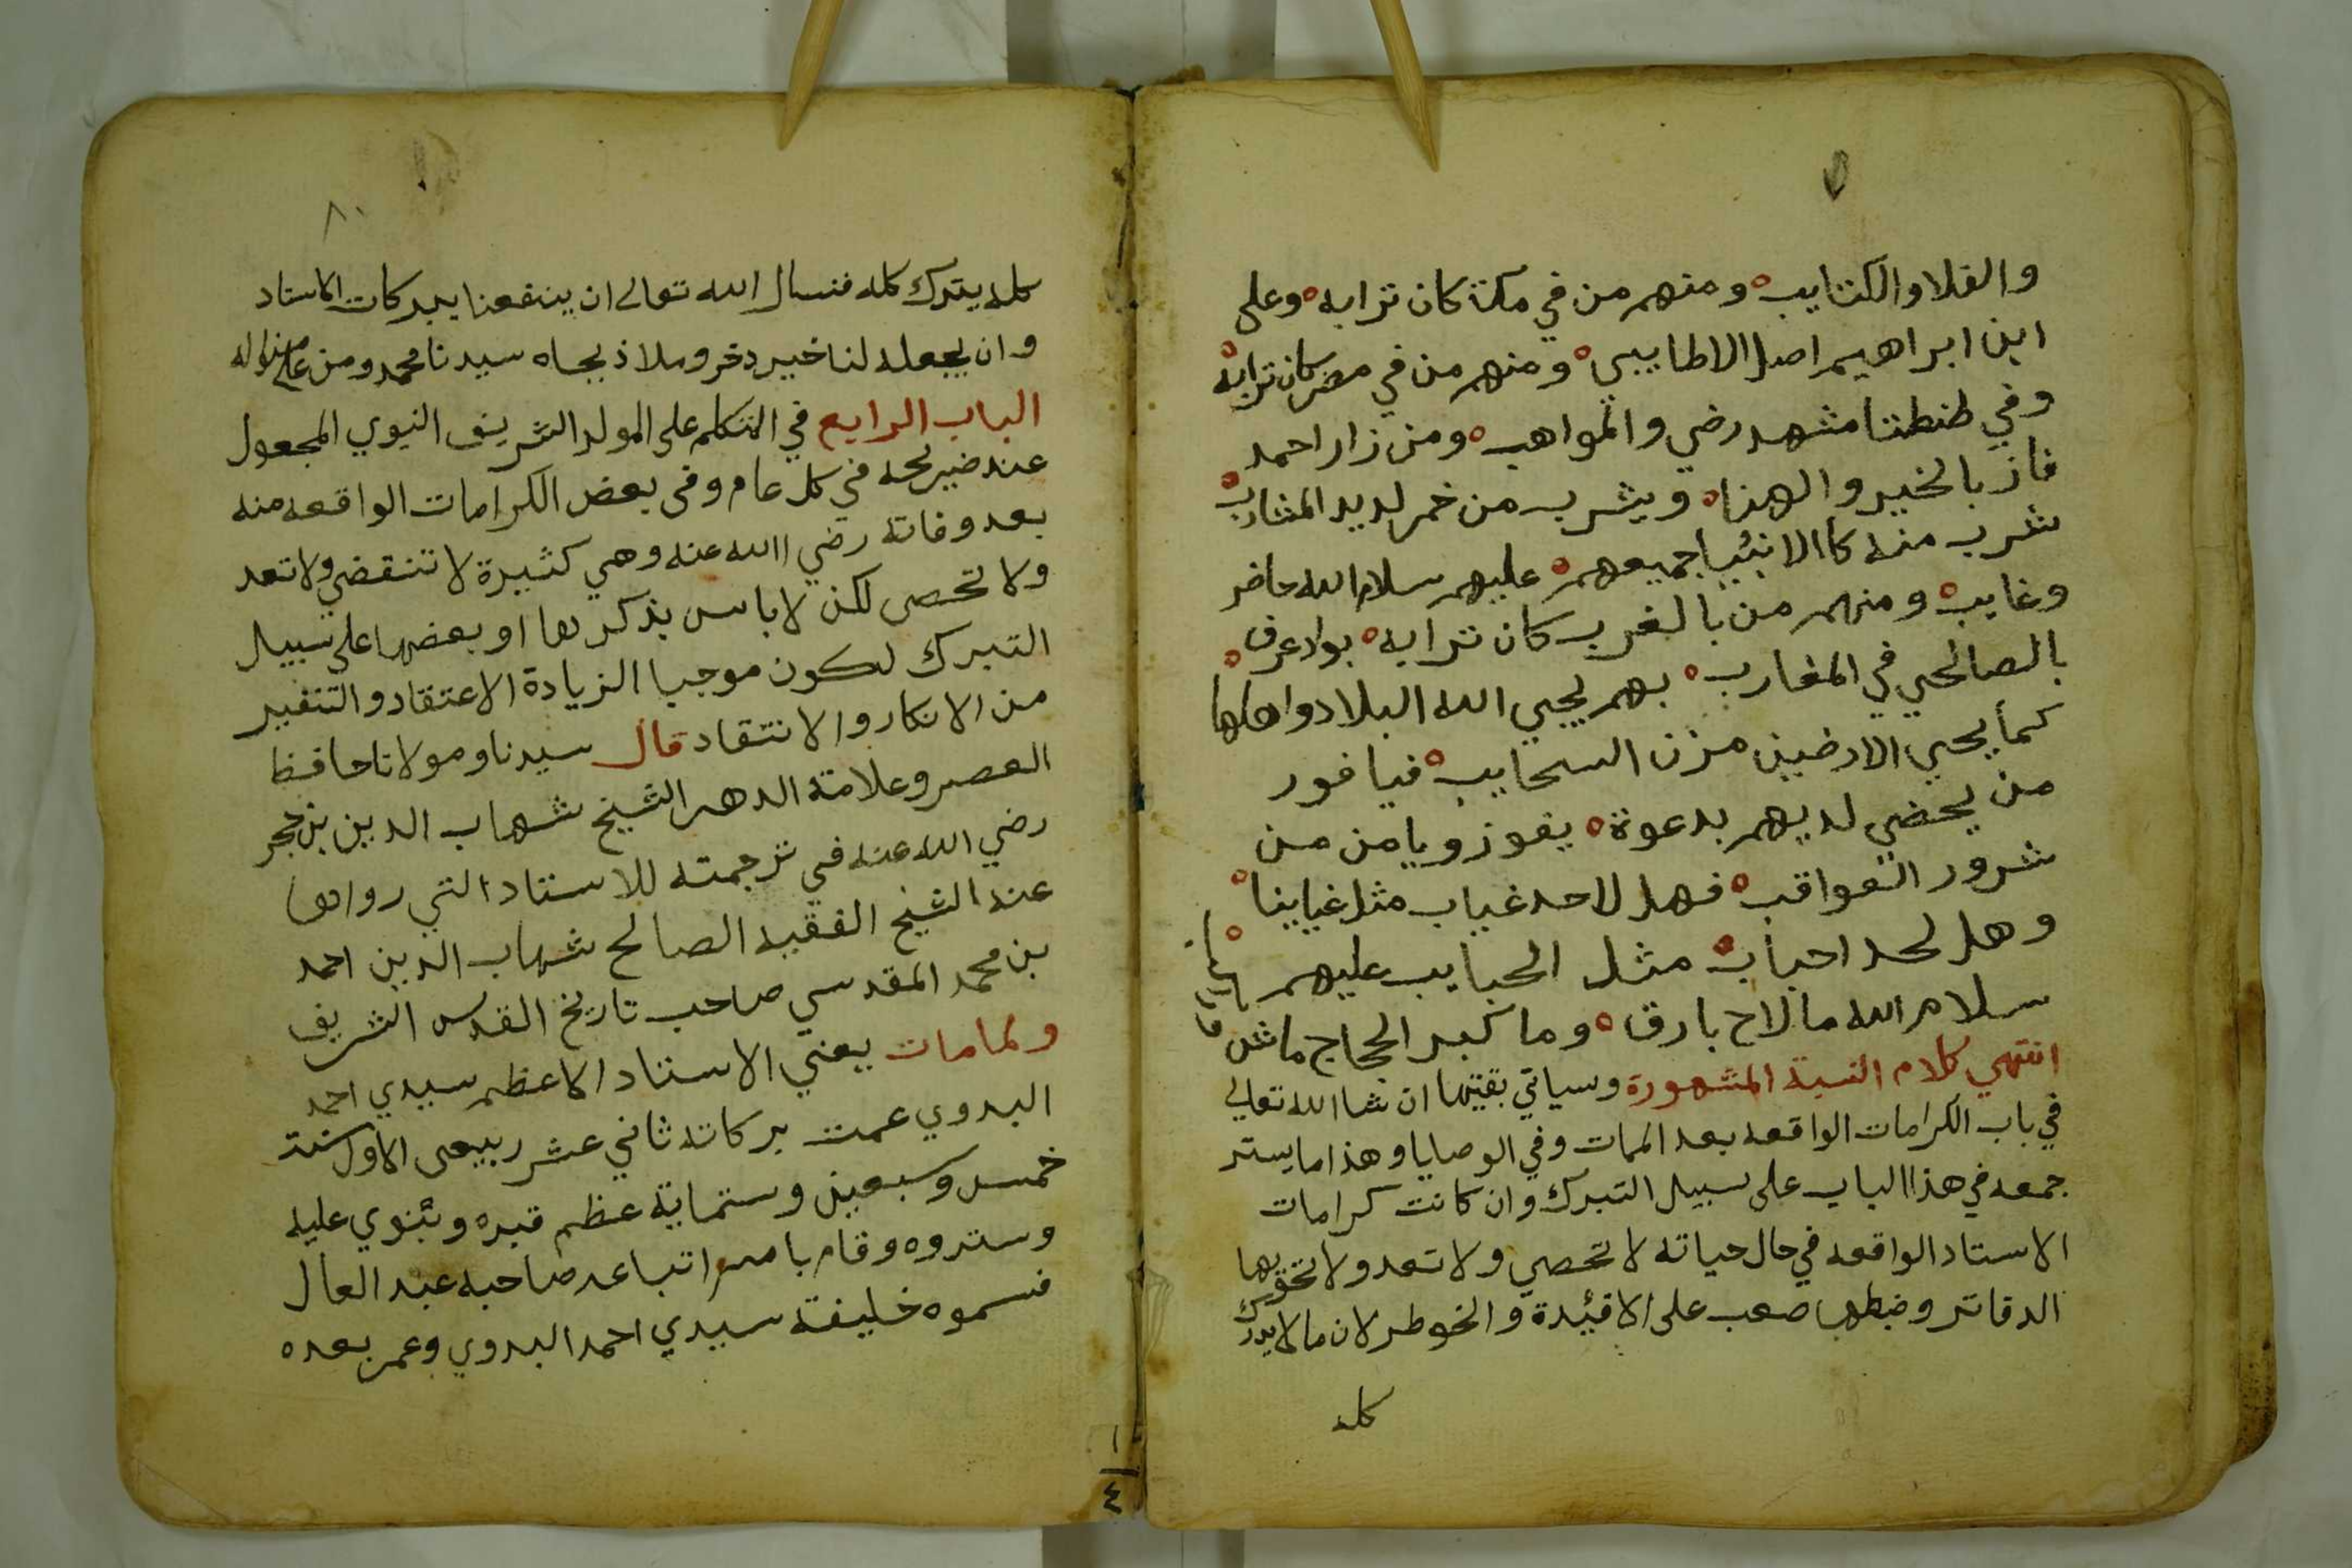 والفلا والكتايب ه ومنهم من في مكة كان ترابه ه وعلى
ابن ابراهيم اصل الاطايبي ه ومنهم من في مصر كان ترابه ه
وفي طنطتا مشهد رضي والمواهب ه ومن زار احمد
فاز بالخير والهنا ه ويشرب من خمر لديد المشارب ه
شرب منه كاالانبيا جميعهم ه عليهم سلام الله حاضر
وغايب ه ومنهم من بالغرب كان ترابه ه بواد عرف ه
بالصالحي في المغارب ه بهم يحيي الله البلاد واهلها
كما يحيي الارضين مزن السحايب ه فيا فور
من يحضي لديهم بدعوة ه يفوز ويامن من
شرور العواقب ه فهل لاحد غياب مثل غيابنا ه
وهل لحد احباب ه مثل الحبايب عليهم ه
سلام الله ما لاح بارق ه وما كبر الحجاج ماش
انتهي كلام النسبة المشهورة وسياتي بقيتها ان شا الله تعالي
في باب الكرامات الواقعه بعد الممات وفي الوصايا وهذا ما يستر
جمعه في هذا الباب على سبيل التبرك وان كانت كرامات
الاستاد الواقعه في حال حياته لا تحصي ولا تعد ولا تحويها
الدفاتر وضبطها صعب على الافئدة والخوطر لان ما لا يدرك
كله
٨٠
كله يترك كله فنسال الله تعالى ان ينفعنا ببركات الاستاد
وان يجعله لنا خير دخر وملاذ بجاه سيدنا محمد ومن على منواله
الباب الرابع في التكلم على المولد الشريف النبوي المجعول
عند ضريحه في كل عام وفى بعض الكرامات الواقعه منه
بعد وفاته رضي االله عنه وهي كثيرة لا تنقضي ولا تعد
ولا تحصى لكن لا باس بذكرها او بعضها على سبيل
التبرك لكون موجبا الزيادة الاعتقاد والتنفير
من الانكار والانتقاد قال سيدنا ومولانا حافظ
العصر وعلامة الدهر الشيخ شهاب الدين بن حجر
رضي الله عنه في ترجمته للاستاد التي رواها
عنه الشيخ الفقيه الصالح شهاب الدين احمد
بن محمد المقدسي صاحب تاريخ القدس الشريف
ولمامات يعني الاستاد الاعظم سيدي احمد
البدوي عمت بركاته ثاني عشر ربيعى الاول سنة
خمس وسبعين وستماية عظم قبره وبنوي عليه
وستروه وقام بامر اتباعه صاحبه عبد العال
فسموه خليفة سيدي احمد البدوي وعمر بعده
١
٤